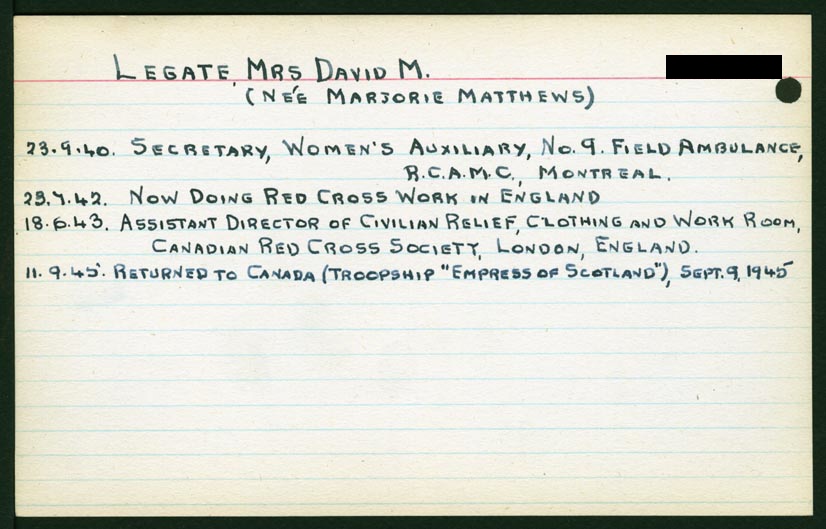 LEGATE, MRS DAVID M.
(NÉE MARJORIE MATTHEWS)
23.9.40. SECRETARY, WOMEN'S AUXILIARY, NO. 9. FIELD AMBULANCE,
R.C.A.M.C., MONTREAL.
23.7.42. NOW DOING RED CROSS WORK IN ENGLAND
18.6.43. ASSISTANT DIRECTOR OF CIVILIAN RELIEF, CLOTHING AND WORK ROOM,
CANADIAN RED CROSS SOCIETY, LONDON, ENGLAND.
11.9.45. RETURNED TO CANADA (TROOPSHIP "EMPRESS OF SCOTLAND"), SEPT. 9, 1945